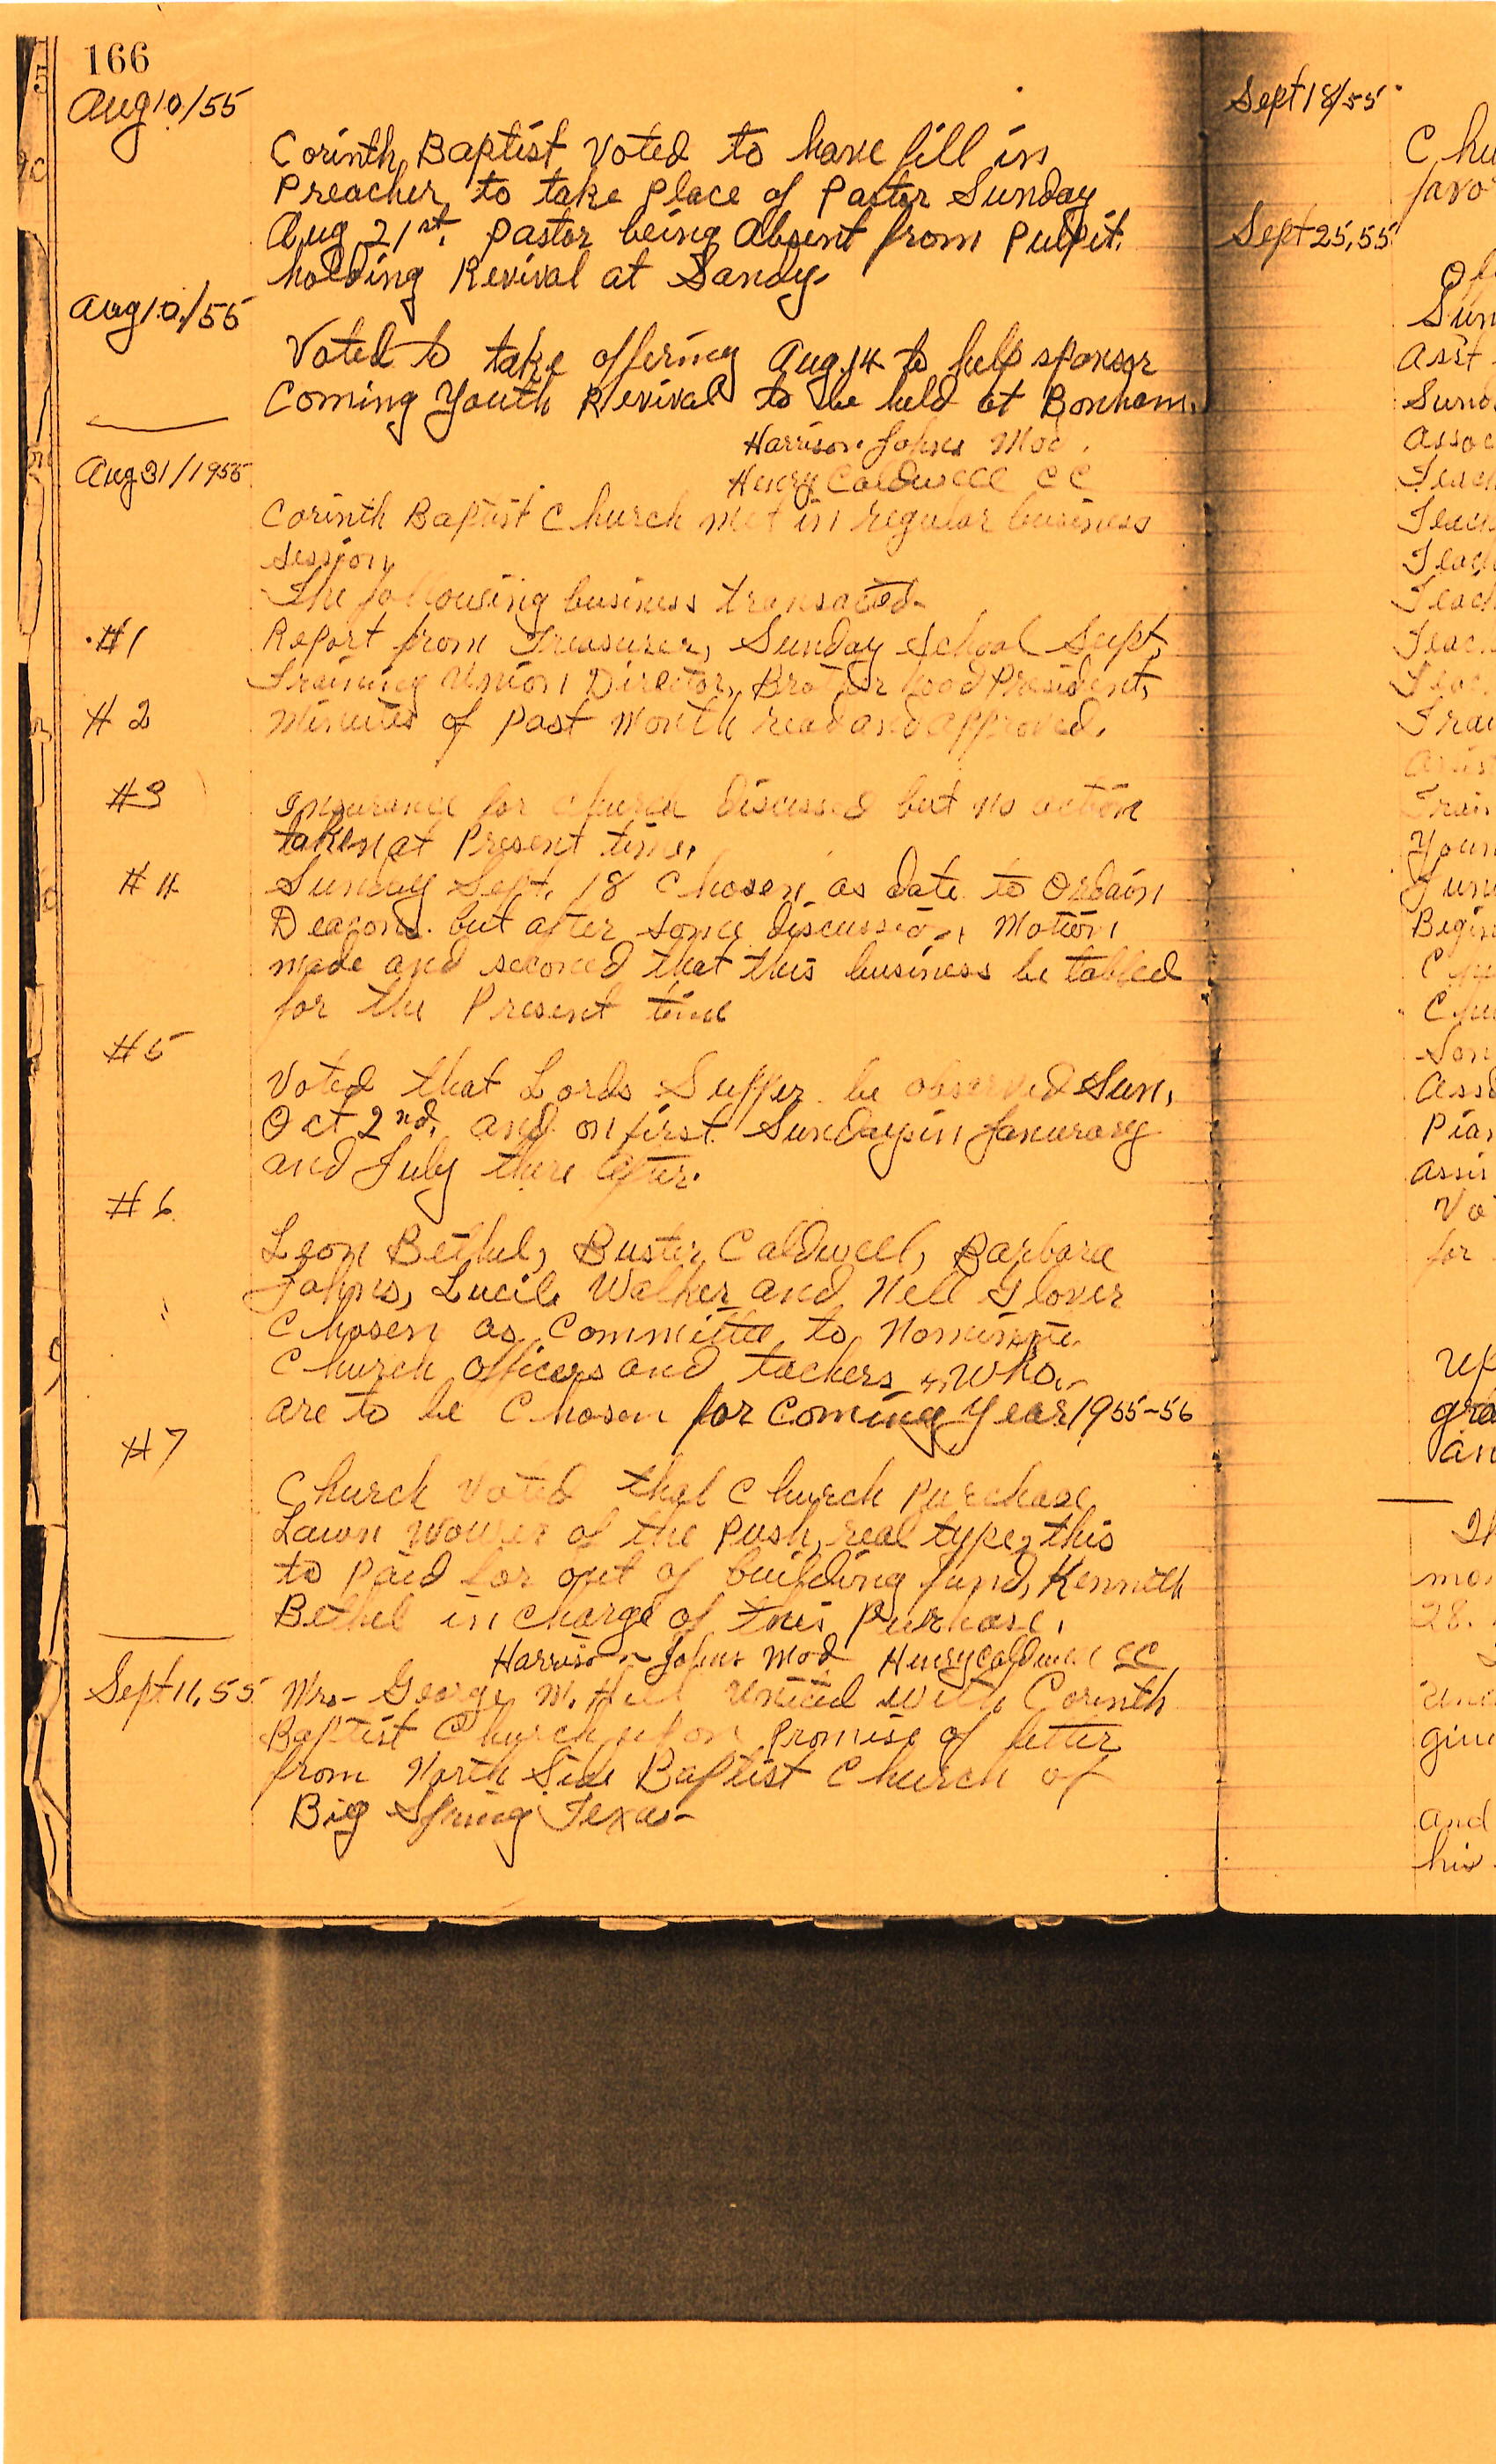 166
Aug 10/55
Corinth Baptist Voted to have fill in
Preacher to take place of Pastor Sunday
Aug 21st. pastor being Absent from Pulpit.
holding Revival at Sandy.
Aug 10/55
Voted to take offering Aug. 14 to help sponsor
Coming Youth Revival to be held at Bonham.
Harrison Johns Mod.
Henry Caldwell CC
Aug 31/1955
Corinth Baptist Church met in regular business
session
The following business transacted-
#1 Report from Treasurer, Sunday School Supt,
Training Union Director, Brotherhood President,
#2 Minutes of past Month read and approved.
#3 Insurance for church discussed but no action
taken at Present time.
#4 Sunday Sept. 18 Chosen as date to Ordain
Deacons. but after some discussion Motion
made and seconed that this business be tabled
for the Present time
#5
Voted that Lords Supper be observed Sun.
Oct 2nd. and on first Sundays in Janurary
and July there after.
#6
Leon Bethel, Buster Caldwell, Barbara
Johns, Lucile Walker and Nell Glover
Chosen as Committee to Nominate
Church officers and teachers who
are to be Chosen for coming Year 1955-56
#7
Church voted that Church purchase
Lawn Mower of the push real type, this
to Paid for out of building fund, Kenneth
Bethel in charge of this Purchase.
Harrison Johns Mod Henry Caldwell CC
Sept 11, 55 Mrs- George M. Hill united with Corinth
Baptist Church upon Promise of letter
from North Side Baptist Church of
Big Spring Texas-
Sept 18/55
Sept 25, 55